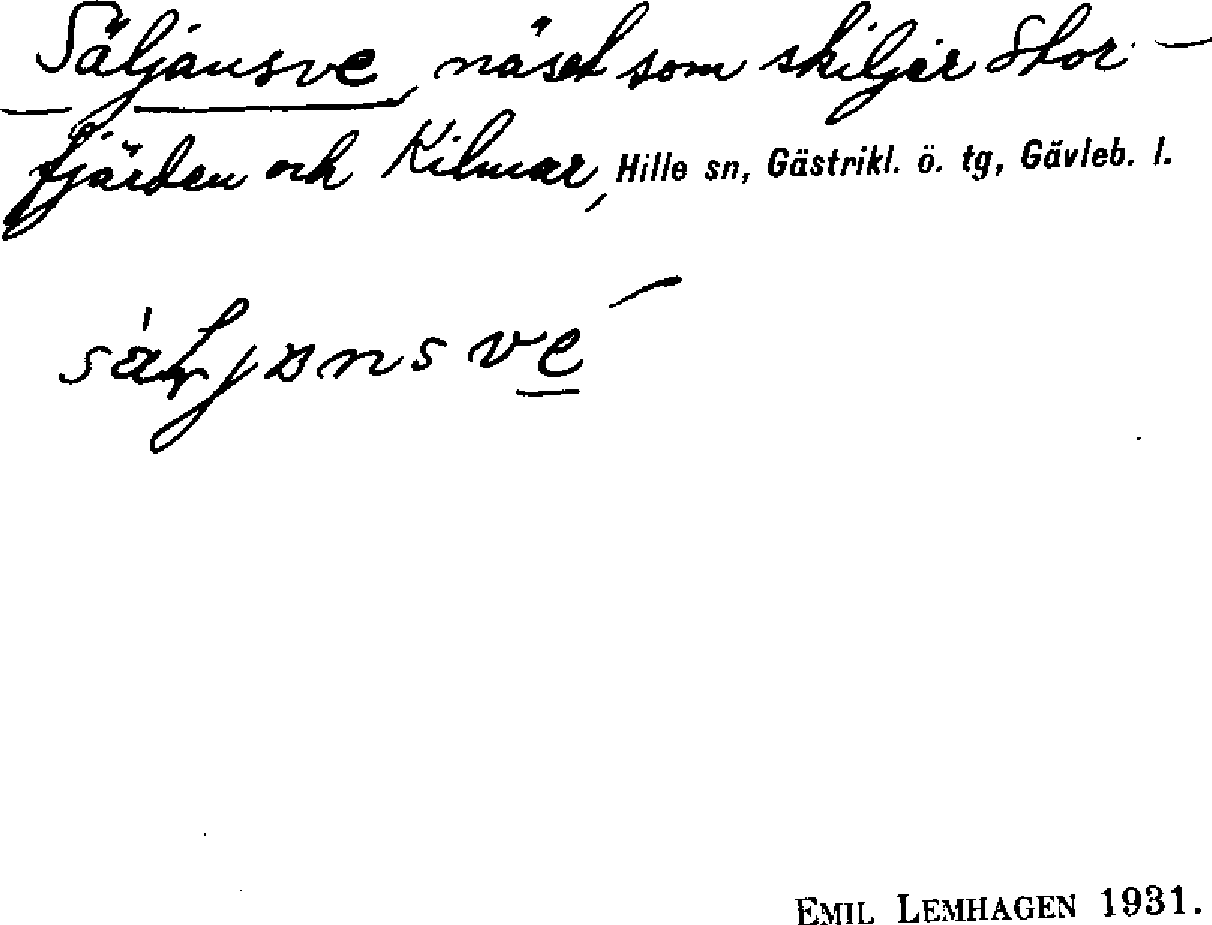 Säljansve, näset som skiljer Stor-
fjärden och Kilmar, Hille sn, Gästrikl. ö. tg, Gävleb. l.
EMIL LEMHAGEN 1931.